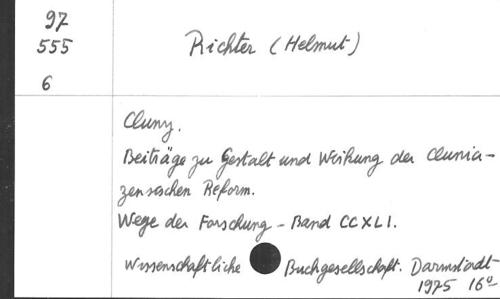 97
555
6
Richter (Helmut)
Cluny.
Beiträge zu Gestalt und Wirkung der Clunia-
zensischen Reform.
Wege der Forschung - Band CCXLI.
Wissenschaftliche Buchgesellschaft. Darmstadt-
1975 16°